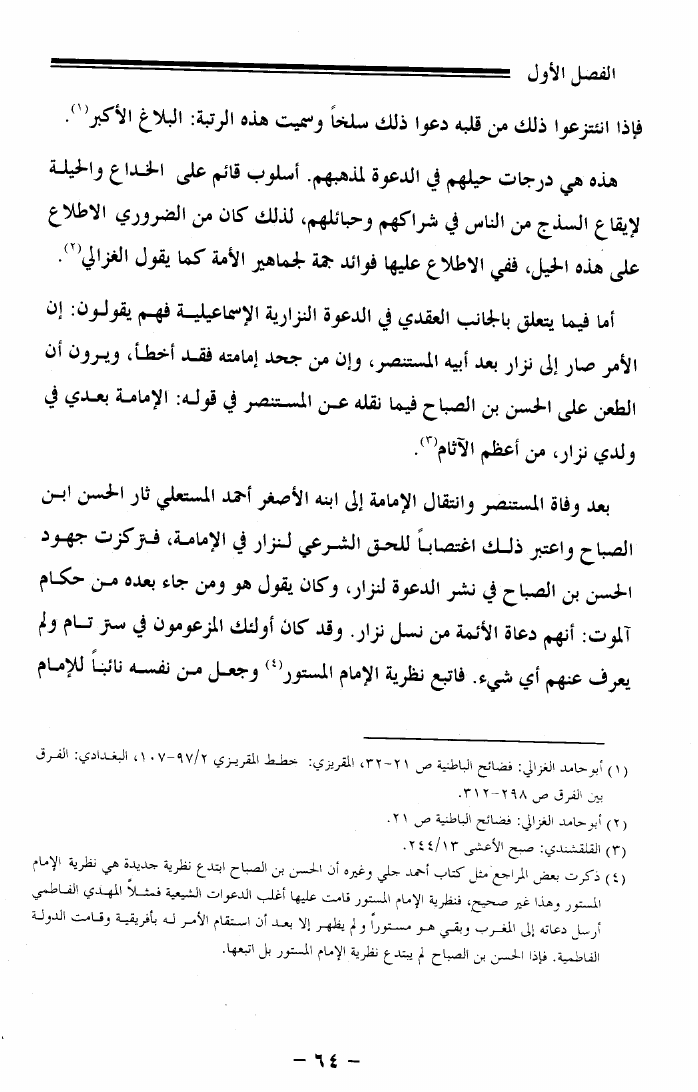 الفصل الأول
فإذا انتزعوا ذلك من قلبه دعوا ذلك سلخاً وسميت هذه الرتبة: البلاغ الأكبر(١).
هذه هي درجات حيلهم في الدعوة لمذهبهم. أسلوب قائم على الخداع والحيلة
لإيقاع السذج من الناس في شراكهم وحبائلهم، لذلك كان من الضروري الاطلاع
على هذه الحيل، ففي الاطلاع عليها فوائد جمة لجماهير الأمة كما يقول الغزالي(٢).
أما فيما يتعلق بالجانب العقدي في الدعوة النزارية الإسماعيلية فهم يقولون: إن
الأمر صار إلى نزار بعد أبيه المستنصر، وإن من جحد إمامته فقد أخطأ، ويرون أن
الطعن على الحسن بن الصباح فيما نقله عن المستنصر في قوله: الإمامة بعدي في
ولدي نزار، من أعظم الآثام(٣).
بعد وفاة المستنصر وانتقال الإمامة إلى ابنه الأصغر أحمد المستعلي ثار الحسن ابن
الصباح واعتبر ذلك اغتصاباً للحق الشرعي لنزار في الإمامة، فتركزت جهود
الحسن بن الصباح في نشر الدعوة لنزار، وكان يقول هو ومن جاء بعده من حكام
آلموت: أنهم دعاة الأئمة من نسل نزار. وقد كان أولئك المزعومون في ستر تام ولم
يعرف عنهم أي شيء. فاتبع نظرية الإمام المستور(٤) وجعل من نفسه نائباً للإمام
(١) أبو حامد الغزالي: فضائح الباطنية ص ٢١-٣٢، المقريزي: خطط المقريزي ٩٧/٢-١٠٧، البغدادي: الفرق
بين الفرق ص ٢٩٨-٣١٢.
(٢) أبو حامد الغزالي: فضائح الباطنية ص ٢١.
(٣) القلقشندي: صبح الأعشى ٢٤٤/١٣.
(٤) ذكرت بعض المراجع مثل كتاب أحمد جلي وغيره أن الحسن بن الصباح ابتدع نظرية جديدة هي نظرية الإمام
المستور وهذا غير صحيح، فنظرية الإمام المستور قامت عليها أغلب الدعوات الشيعية فمثلاً المهدي الفاطمي
أرسل دعاته إلى المغرب وبقي هو مستوراً ولم يظهر إلا بعد أن استقام الأمر له بأفريقية وقامت الدولة
الفاطمية. فإذا الحسن بن الصباح لم يبتدع نظرية الإمام المستور بل اتبعها.
- ٦٤ -